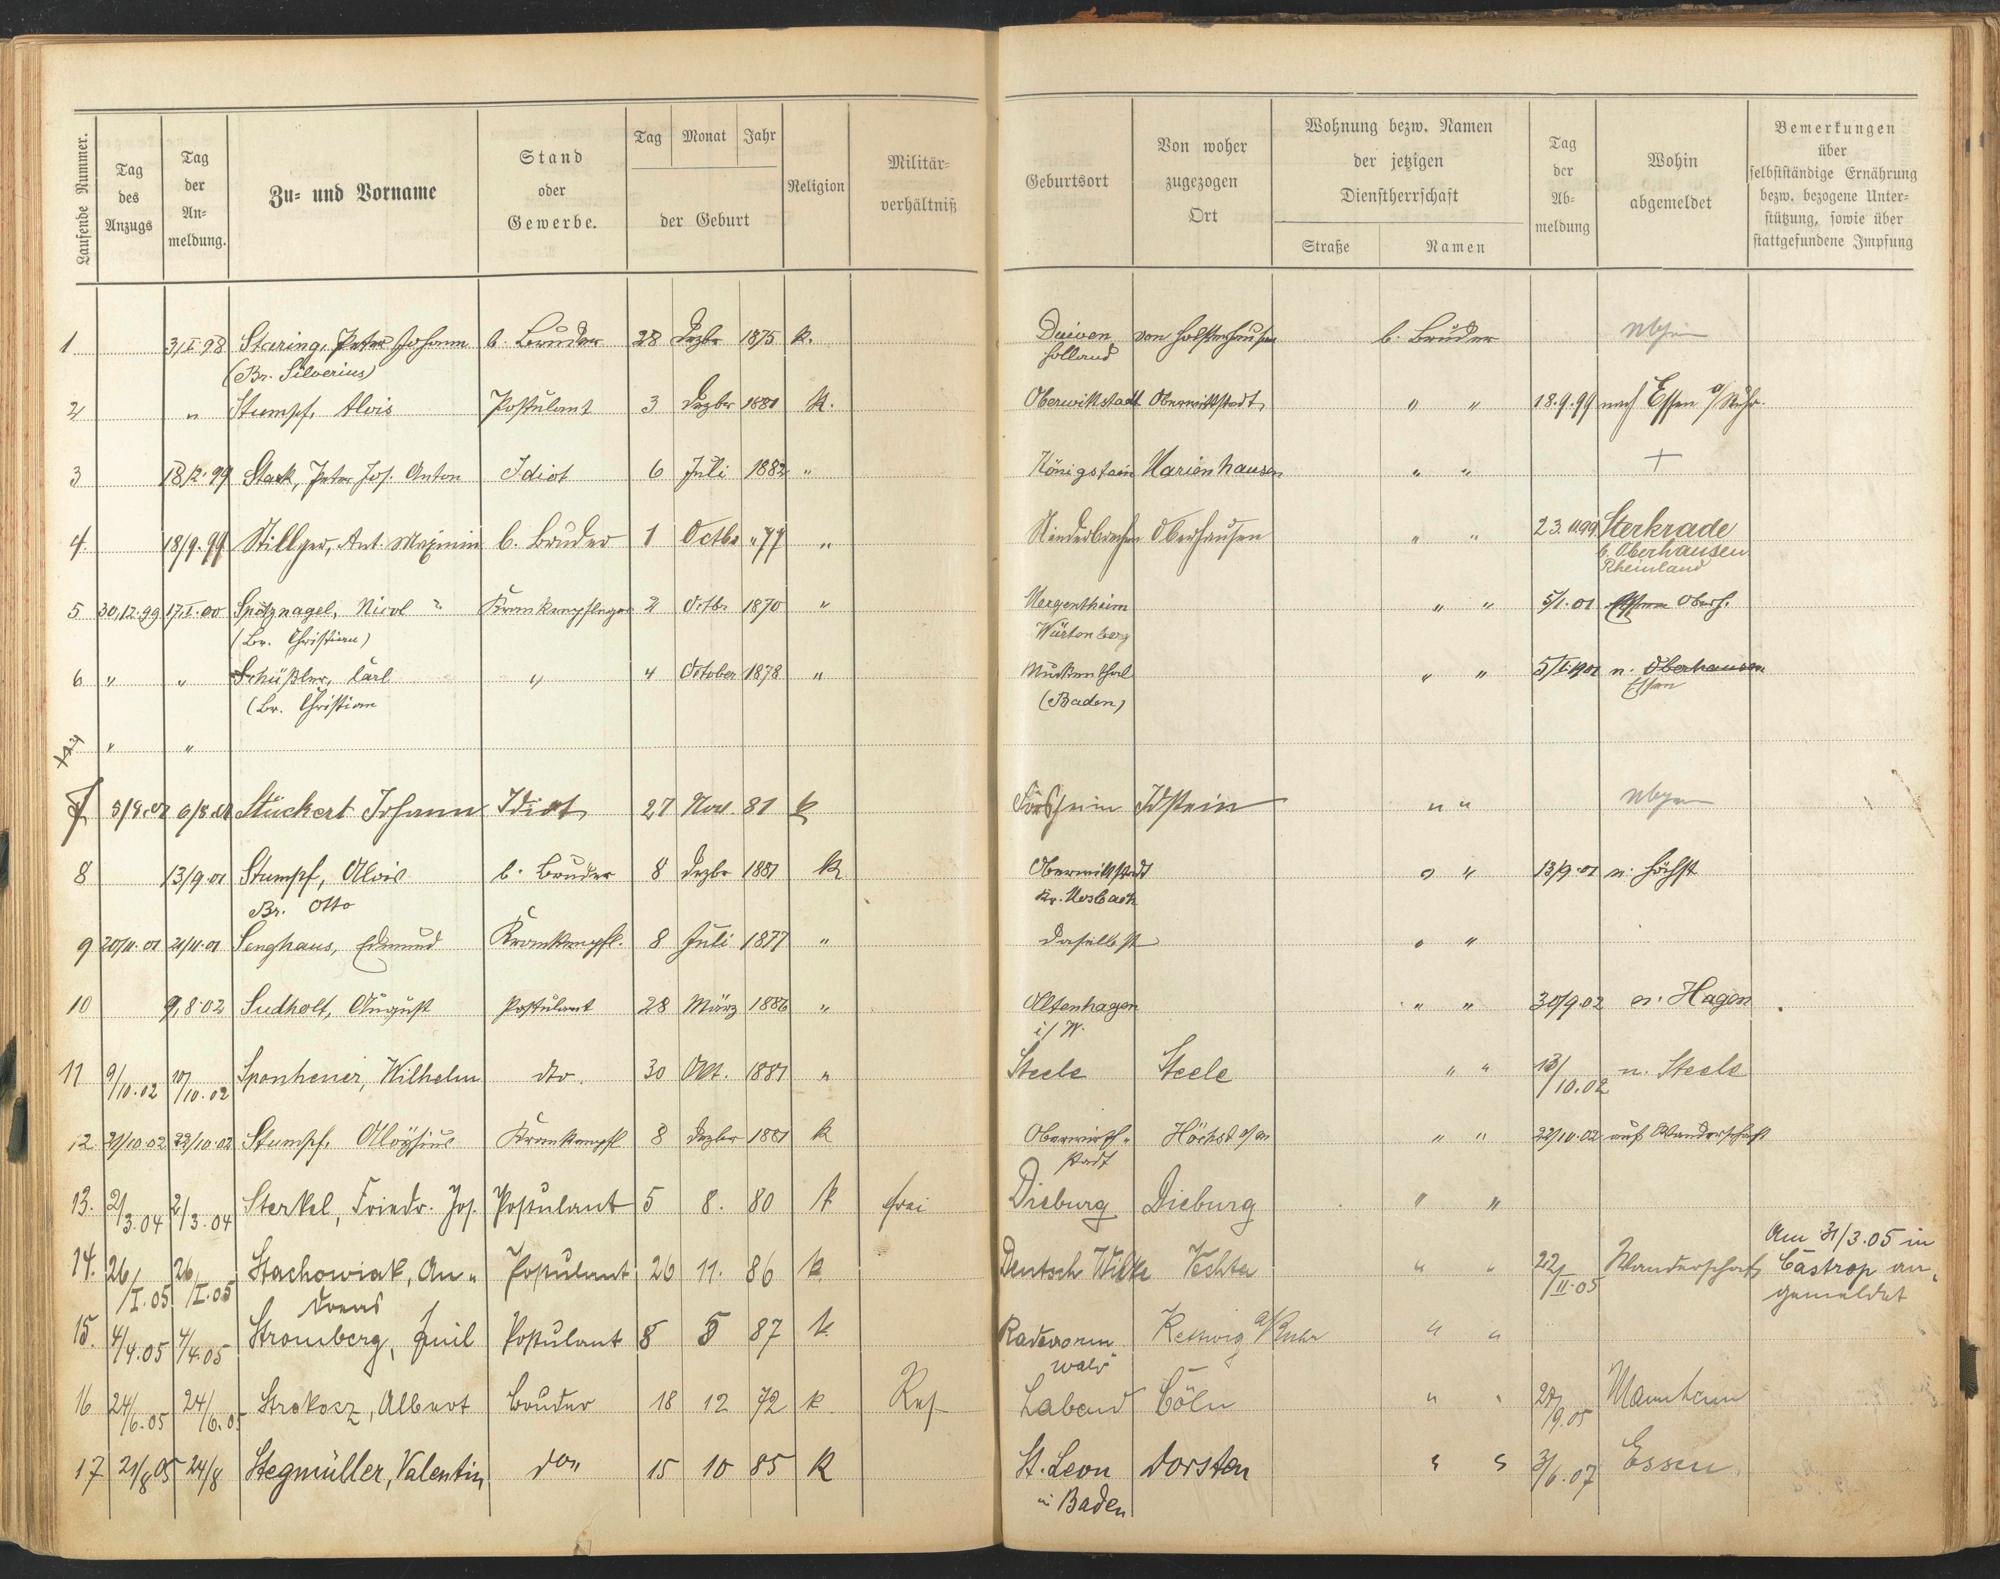 Laufende Nummer.
Tag des Anzugs
Tag der Anmeldung.
Zu- und Vorname
Stand oder Gewerbe.
Tag Monat Jahr
der Geburt
Religion
Militärverhältniß
Geburtsort
Von woher zugezogen Ort
Wohnung bezw. Namen der jetzigen Dienstherrschaft
Straße Namen
Tag der Abmeldung
Wohin abgemeldet
Bemerkungen über selbstständige Ernährung bezw. bezogene Unterstützung, sowie über stattgefundene Impfung
1 3/I 98 Staring, Peter Johann b. Bruder 28 Dezbr 1875 k. Duiven von Holsterhausen b. Bruder
(Br. Silverius) Holland
2 " Stumpf, Alois Postulant 3 Dezbr 1881 K. Oberwittstadt Oberwittstadt " " 18.9.99 nach Essen a/Ruhr.
3 18/2.99 Stark, Peter Jos. Anton Idiot 6 Juli 1882 " Königstein Marienhausen " " +
4. 18/9.99 Stillger, Ant. b. Bruder 1 Octbr " 77 " Oberhausen " " 23. 11.99. Sterkrade
b. Oberhausen
Rheinland
5 30,12.99 17,I.00 Spätznagel, Nicol Krankenpfleger 2 Octbr 1870 " Mergentheim " " 5/I.01 Oberh.
(Br. Christian) Würtenberg
6 " " Schüßler, Carl " 4 October 1878 " " " 5/I.1901 n. Oberhausen
(Br. Christian (Baden) Essen
" "
7 Stückert Johann Idiot 27 Nov. 81 k Idstein " "
8 13/9.01 Stumpf, Alois b. Bruder 8 Dezbr 1881 K Oberwittstadt " " 13/9.01 n. Höchst
Br. Otto Kr. Mosbach
9 20/11.01 21/11.01 Senghaus, Edmund Krankenpfl. 8 Juli 1877 " Daselbst " "
10 9,8.02 Sudholt, August Postulant 28 März 1886 " Altenhagen " " 30/9.02 n. Hagen
i/W.
11 9/10.02 10/10.02 Sponheuer, Wilhelm dto. 30 Okt. 1881 " Steele Steele " " 13/10.02 n. Steele
12 21/10.02 22/10.02 Stumpf, Aloÿsius Krankenpfl 8 Dezbr 1881 K Höchst a/M " " 22/10.02 auf Wanderschaft
stadt
13. 2/3.04 2/3.04 Sterkel, Friedr. Jos. Postulant 5 8. 80 k frei Dieburg Dieburg " "
14. 26/I.05 26/I.05 Stachowiak, An- Postulant 26 11. 86 k Deutsch Wilke Vechta " " 22/II.05 Wanderschaft Am 31/3.05 in
Castrop an-
gemeldet
dreas
15. 4/4.05 4/4.05 Stromberg, Emil Postulant 8 5 87 k. Radevorm Kettwig a/Ruhr " "
wald
16 24/6.05 24/6.05 Strokosz, Albert Bruder 18 12 72 k Res Laband Cöln " " 20/9.05 Mannheim
17 21/8.05 24/8 Stegmüller, Valentin do" 15 10 85 K St. Leon Dorsten " " 3/6.07 Essen.
in Baden